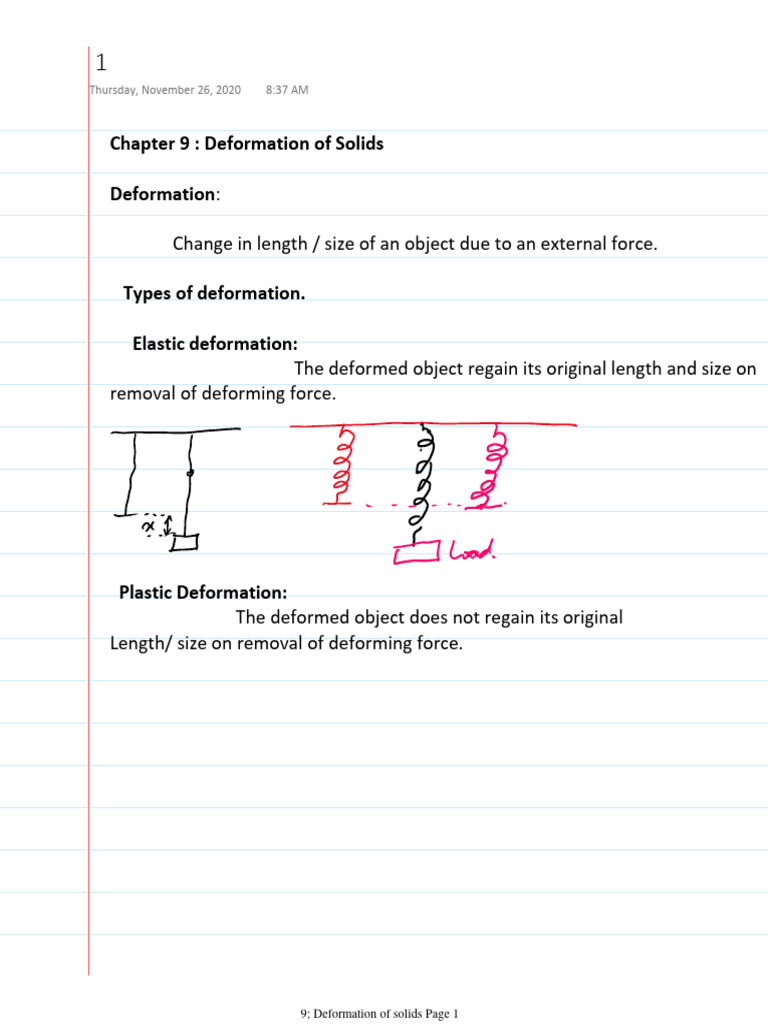 1
Thursday, November 26, 2020 8:37 AM
Chapter 9 : Deformation of Solids
Deformation:
Change in length / size of an object due to an external force.
Types of deformation.
Elastic deformation:
The deformed object regain its original length and size on
removal of deforming force.
x
Load.
Plastic Deformation:
The deformed object does not regain its original
Length/ size on removal of deforming force.
9; Deformation of solids Page 1